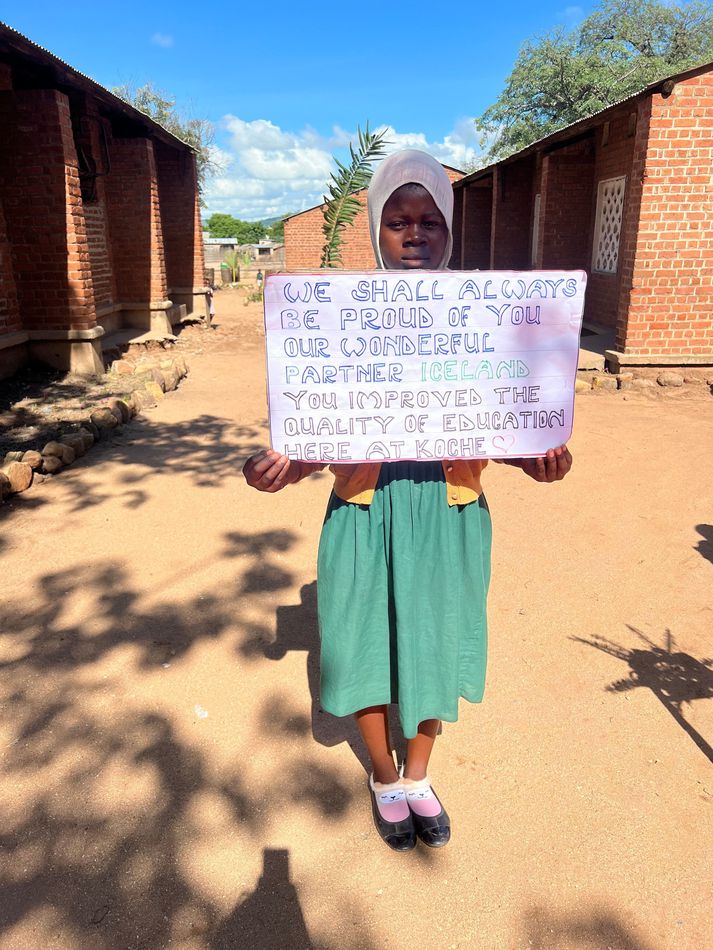 WE SHALL ALWAYS
BE PROUD OF YOU
OUR WONDERFUL
PARTNER ICELAND
YOU IMPROVED THE
QUALITY OF EDUCATION
HERE AT KOCHE